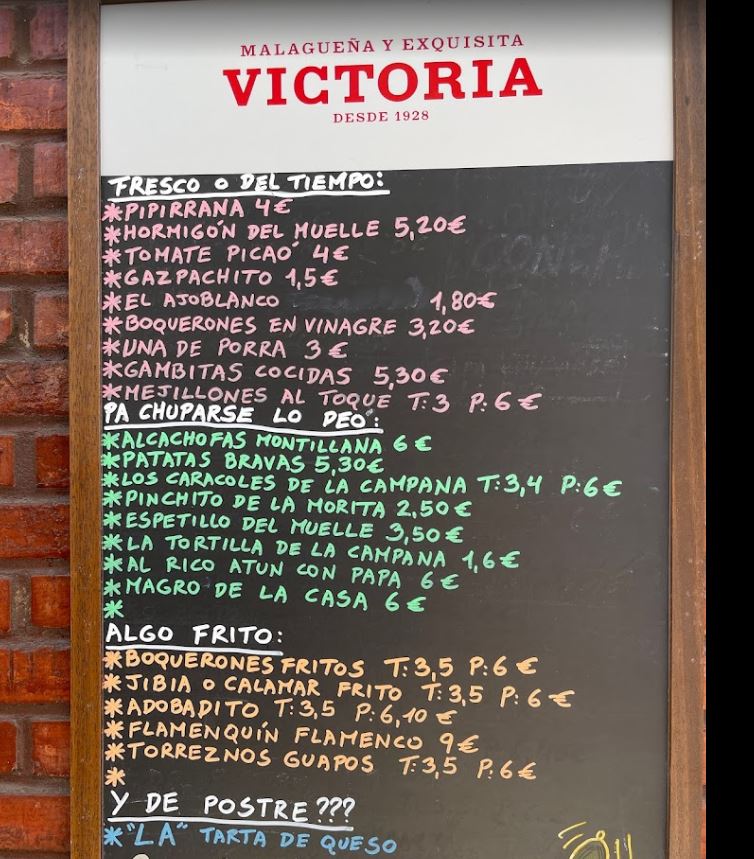 MALAGUEÑA Y EXQUISITA
VICTORIA
DESDE 1928
FRESCO O DEL TIEMPO:
*PIPIRRANA 4€
*HORMIGÓN DEL MUELLE 5,20€
*TOMATE PICAO' 4€
*GAZPACHITO 1,5€
*EL AJOBLANCO 1,80€
*BOQUERONES EN VINAGRE 3,20€
*UNA DE PORRA 3€
*GAMBITAS COCIDAS 5,30€
*MEJILLONES AL TOQUE T:3 P:6€
PA CHUPARSE LO DEO':
*ALCACHOFAS MONTILLANA 6€
*PATATAS BRAVAS 5,30€
*LOS CARACOLES DE LA CAMPANA T:3,4 P:6€
*PINCHITO DE LA MORITA 2,50€
*ESPETILLO DEL MUELLE 3,50€
*LA TORTILLA DE LA CAMPANA 1,6€
*AL RICO ATUN CON PAPA 6€
*MAGRO DE LA CASA 6€
*
ALGO FRITO:
*BOQUERONES FRITOS T:3,5 P:6€
*JIBIA O CALAMAR FRITO T:3,5 P:6€
*ADOBADITO T:3,5 P:6,10€
*FLAMENQUÍN FLAMENCO 9€
*TORREZNOS GUAPOS T:3,5 P:6€
*
Y DE POSTRE???
*"LA" TARTA DE QUESO